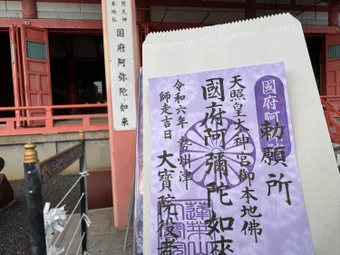 天照大神
本地仏
国府阿弥陀如来
國府阿
勅願所
天照皇大神宮御本地佛
國府阿彌陀如来
令和六年
師走吉日
勢州津
大寶院役者